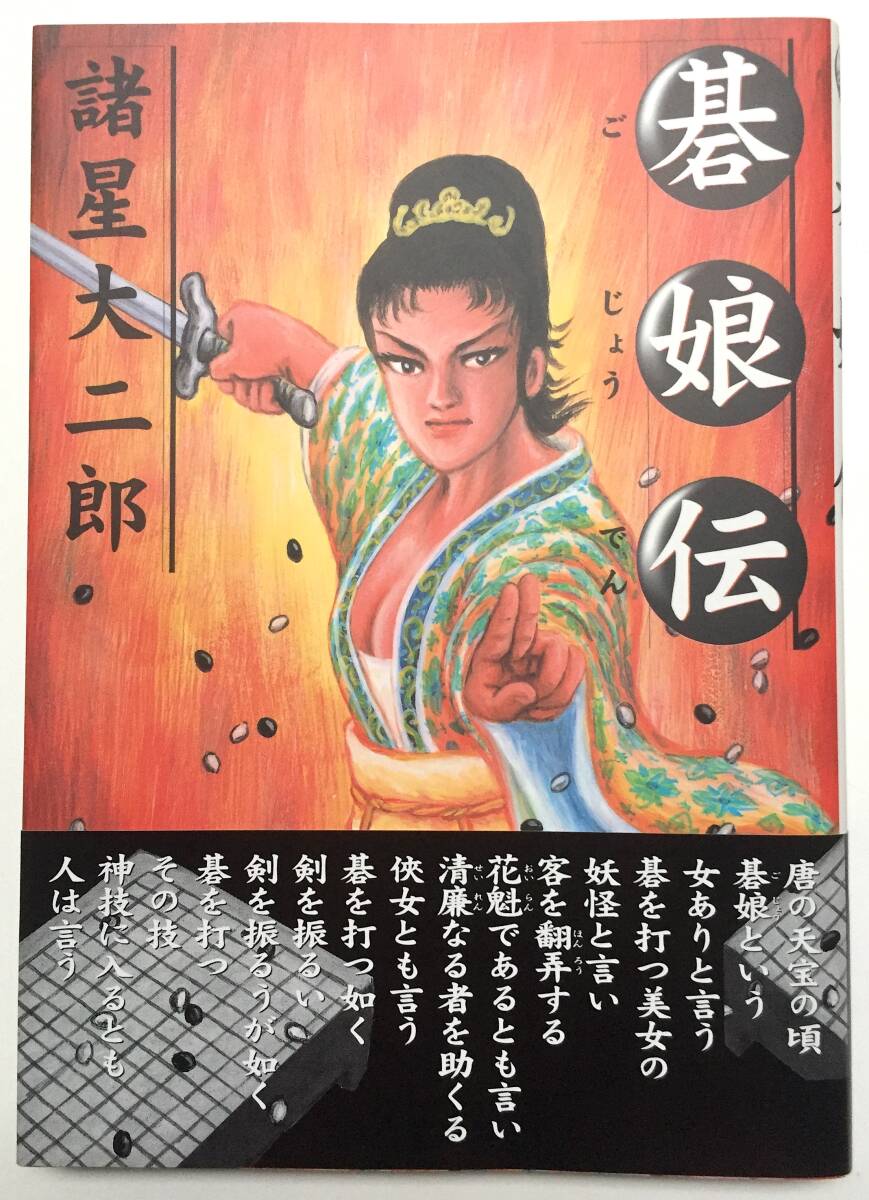 碁娘伝
ごじょうでん
諸星大二郎
唐の天宝の頃
碁娘という
ごじょう
女ありと言う
碁を打つ美女の
妖怪と言い
客を翻弄する
ほんろう
花魁であるとも言い
おいらん
清廉なる者を助くる
せいれん
侠女とも言う
碁を打つ如く
剣を振るい
剣を振るうが如く
碁を打つ
その技
神技に入るとも
人は言う